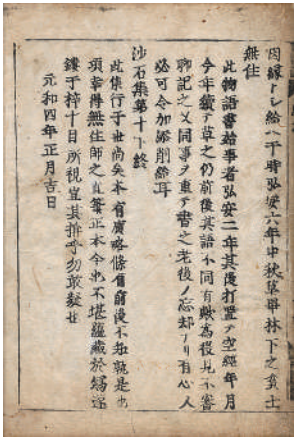 因縁トシ給ヘ于時弘安六年中秋草畢林下之貧士
無住
此物語書始事者弘安二年其後打置テ空経年月
今年續テ草之仍前後其語不同有歟為後見不審
聊記之又同事ヲ重テ書之老後ノ忘却ナリ有心人
必可令加添削給耳
沙石集第十下終
此集行于世尚矣本有廣略條有前後不知孰是也
項幸得無住師之真筆正本今也不堪蘊藏於篇遂
鏤于梓十目所視豈其掩乎勿敢疑世
元和四年正月吉日